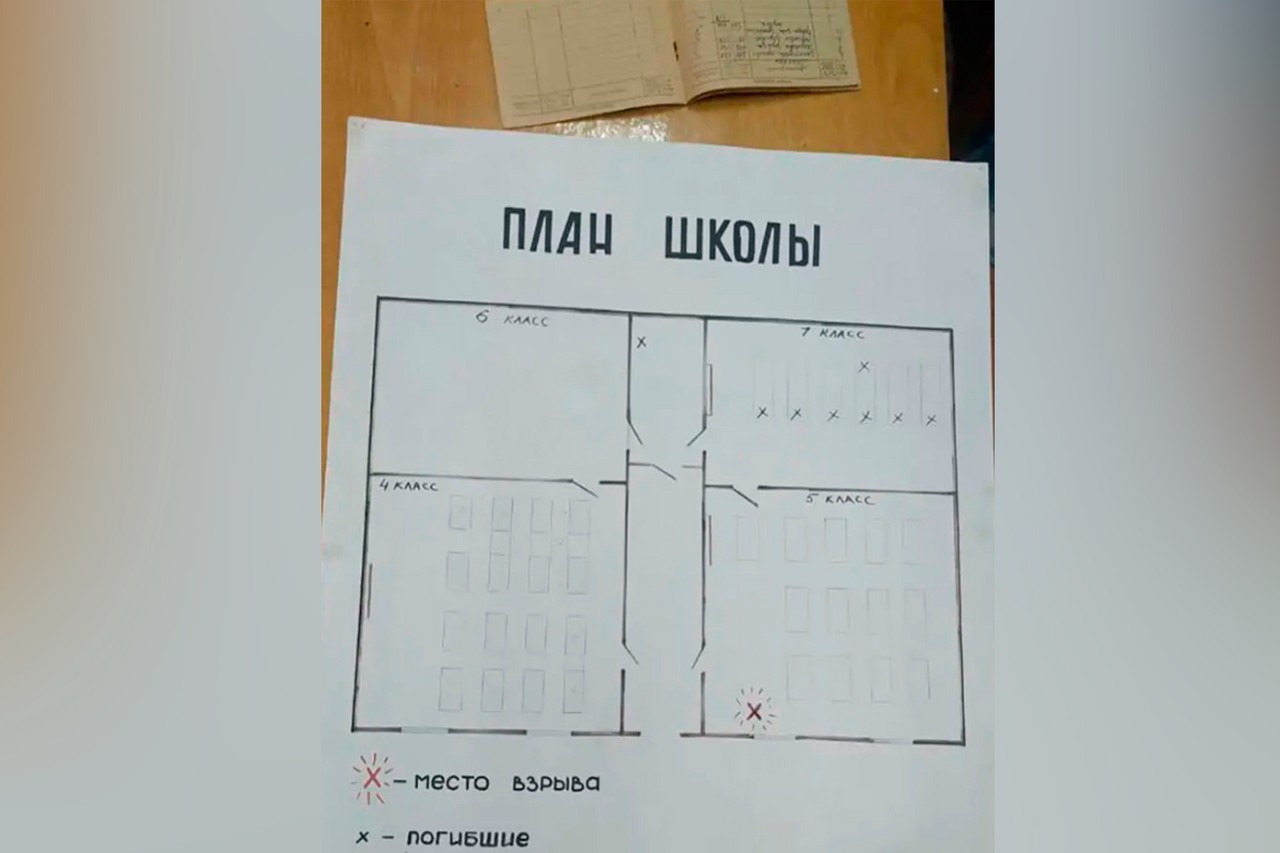 ПЛАН ШКОЛЫ
6 КЛАСС
7 КЛАСС
х
х
х х х х х х
4 КЛАСС
5 КЛАСС
х
х – место взрыва
х – погибшие